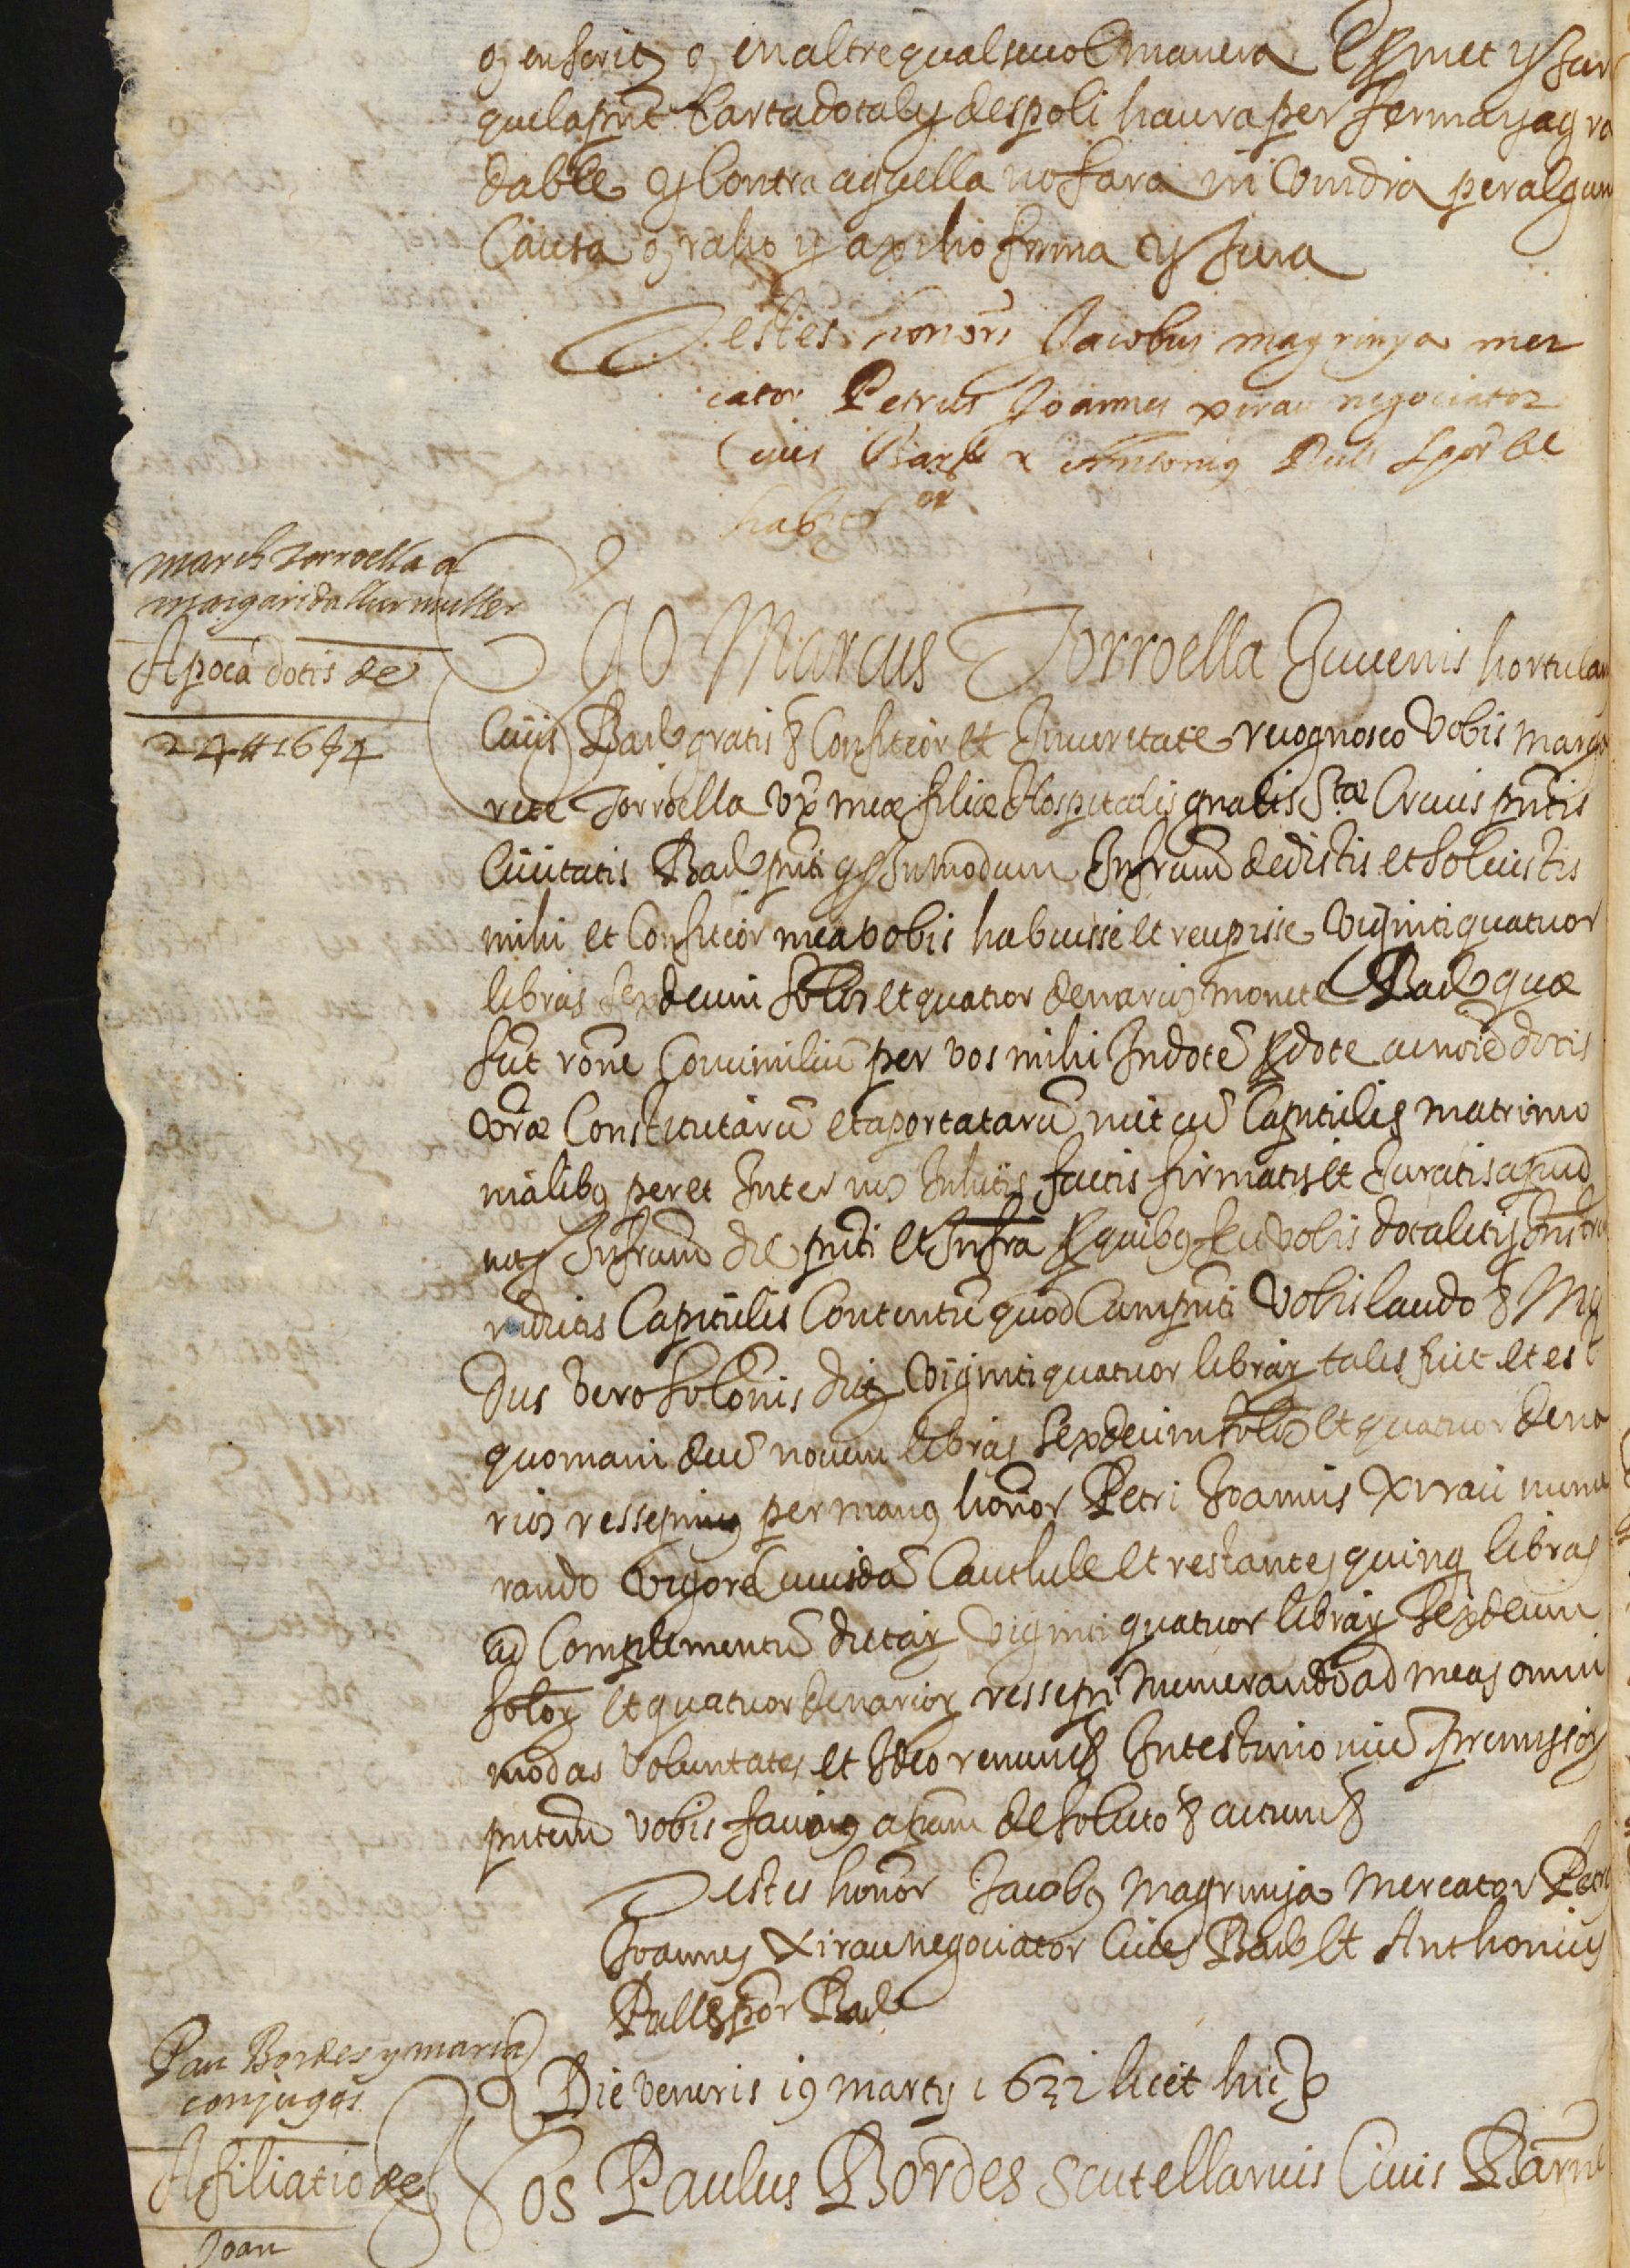 o en scrit o en altre qualsevol manera Est met y sur
que la pnt Carta dotal y despoli haura per ferma y agra
dable y Contra aquella no fara ni Vindra per algun
Causa o raho y axi ho firma y Jura
Testes honors Jacobus magrinya mer
cator Petrus Joannes xirau negociator
Cives Barñe & Antonius Pull
habitor
march torroella a
margarida llur muller
Apoca dotis de
24 ll 16 s 4
EGO Marcus Torroella Juvenis hortulan
Civis Barñe gratis & Confiteor et In veritate recognosco Vobis marga
rete Torroella vxi meæ filiæ Hospitalis gnalis Stæ Crucis pntis
Civitatis Barñe pnti In modum Infrum dedistis et solvistis
mihi et Confiteor me a vobis habuisse et recepisse Viginti quatuor
libras sexdecim solis et quatuor denarios monete Barñe quæ
sunt rone Consimiliũ per vos mihi In dotẽ dote ac noiẽ dotis
vræ Constitutarũ et aportatarũ cũ Capitulis matrimo
nialibus per et Inter nos factis firmatis et Juratis apud
not Infrum die pnti et Infra quibus vobis dotalitijs
Capitulis Contentũ quod Cum pnti Vobis laudo & Mo
Dus vero solonis dict Viginti quatuor librar talis fuit et est
quoniam decẽ novem libras sexdecim solis et quatuor dena
rios ressepimus per manus honor Petri Joannis Xirau nume
rando Vigore Cuiusdã Cautlule et restantes quinq libras
ad Complementũ dictar Viginti quatuor librar sexdecim
solor et quatuor denarior ressepi numerando ad meas omni
modas voluntates et Ideo renun & In testimoniũ premissor
pntem vobis facimus apcam de soluto & actum &
Testes honor Jacobus Magrinya Mercator Petr
Joannes Xirau negociator Cives Barñe et Anthonius
Pull Barñe
Die veneris 19 martij 1632 licet hic &
Pau Bordes y maria
conjuges
Afiliatio de
Joan
Nos Paulus Bordes scutellarius Civis Barñe